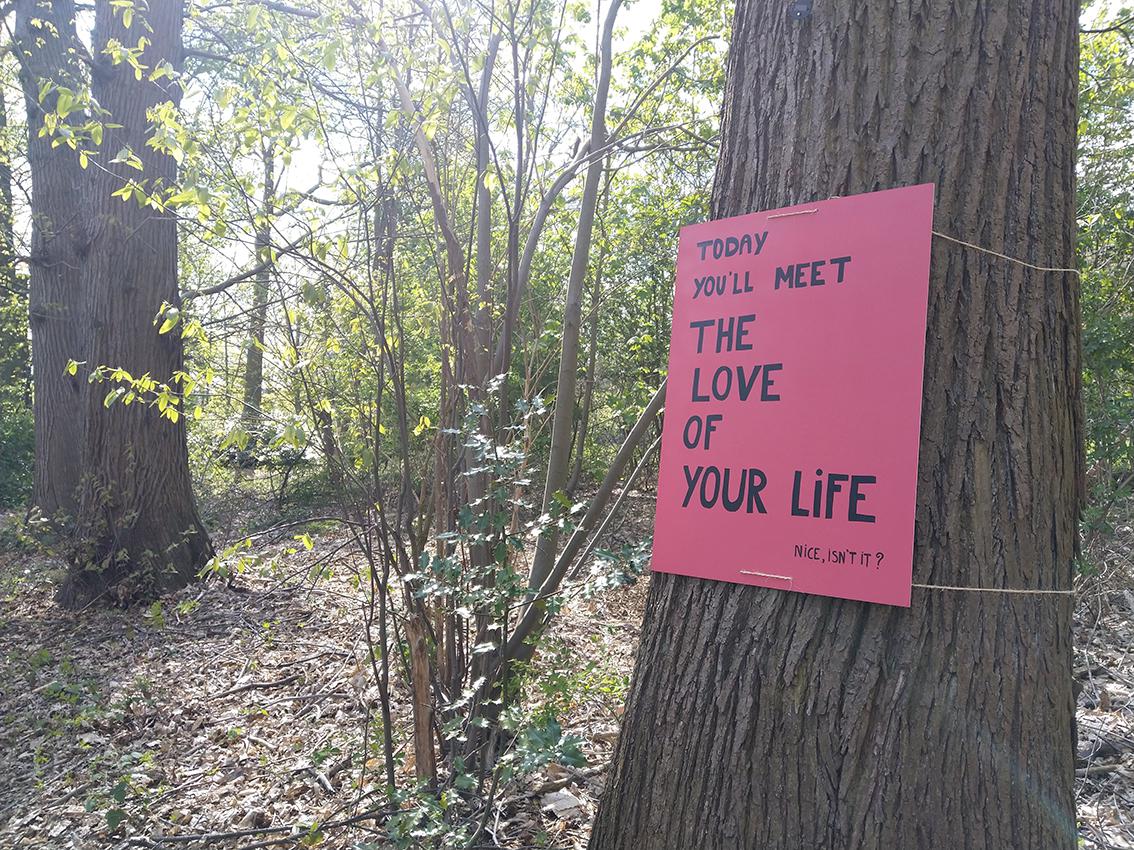 TODAY
YOU'LL MEET
THE
LOVE
OF
YOUR LiFE
NiCE, ISN'T iT?